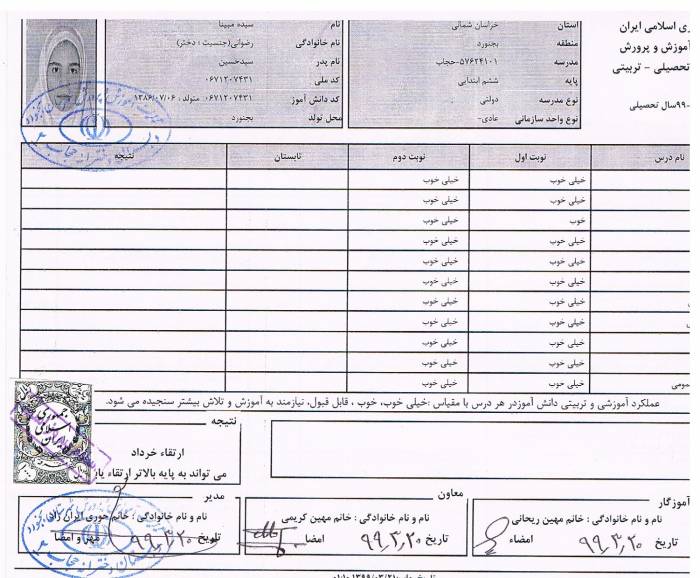 ری اسلامی ایران
آموزش و پرورش
تحصیلی - تربیتی
۹۹-سال تحصیلی
استان خراسان شمالی
منطقه بجنورد
مدرسه ۵۷۶۲۴۱۰۱-حجاب
پایه ششم ابتدایی
نوع مدرسه دولتی
نوع واحد سازمانی عادی-
نام سیده مبینا
نام خانوادگی رضوانی(جنسیت : دختر)
نام پدر سیدحسین
کد ملی ۰۶۷۱۲۰۷۴۳۱
کد دانش آموز ۰۶۷۱۲۰۷۴۳۱ متولد : ۱۳۸۶/۰۷/۰۶
محل تولد بجنورد
نام درس نوبت اول نوبت دوم تابستان نتیجه
خیلی خوب خیلی خوب
خیلی خوب خیلی خوب
خوب خیلی خوب
خیلی خوب خیلی خوب
خیلی خوب خیلی خوب
خیلی خوب خیلی خوب
خیلی خوب خیلی خوب
خیلی خوب خیلی خوب
خیلی خوب خیلی خوب
خیلی خوب خیلی خوب
ومی خیلی خوب خیلی خوب
عملکرد آموزشی و تربیتی دانش آموزدر هر درس با مقیاس :خیلی خوب، خوب ، قابل قبول، نیازمند به آموزش و تلاش بیشتر سنجیده می شود.
نتیجه
ارتقاء خرداد
می تواند به پایه بالاتر ارتقاء یابد
جمهوری
اسلامی
ایران
آموزگار
نام و نام خانوادگی : خانم مهین ریحانی
تاریخ ۹۹,۳,۲۰ امضاء
معاون
نام و نام خانوادگی : خانم مهین کریمی
تاریخ ۹۹,۳,۲۰ امضا
مدیر
نام و نام خانوادگی : خانم حوری ایران زاد
تاریخ ۹۹,۳,۲۰ مهر و امضا